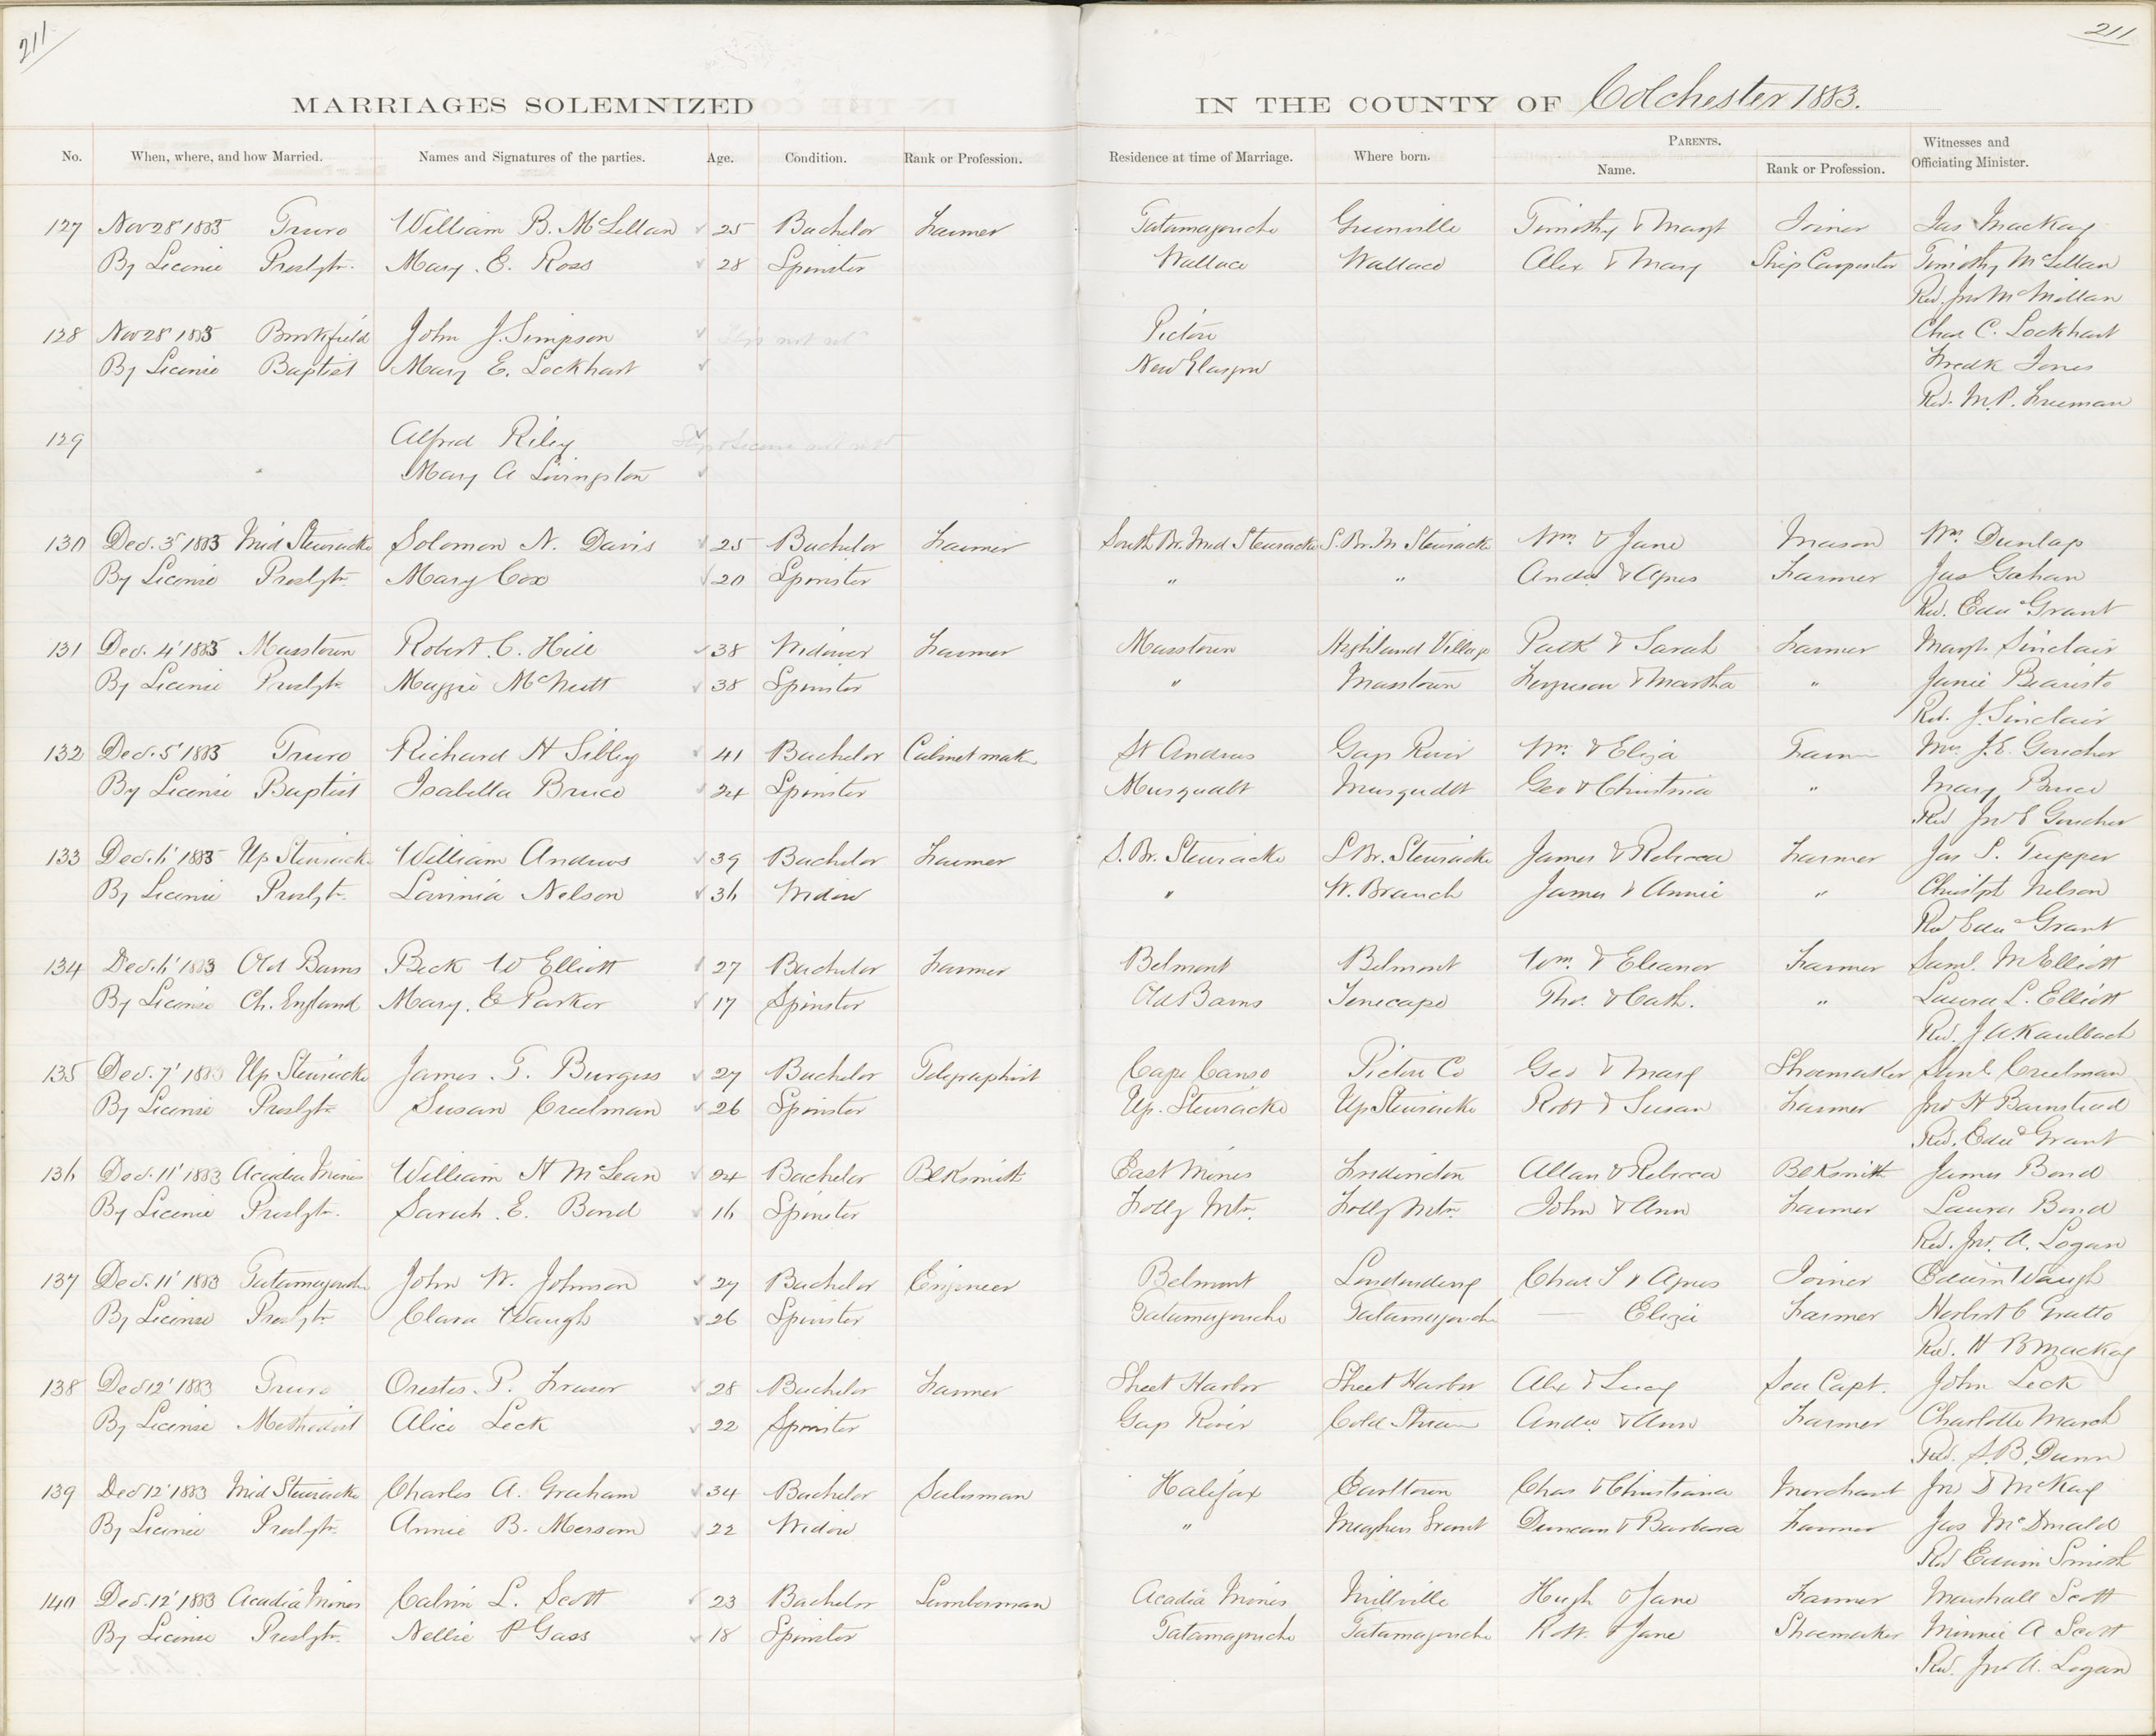 211 211
MARRIAGES SOLEMNIZED IN THE COUNTY OF Colchester 1883.
No. When, where, and how Married. Names and Signatures of the parties. Age. Condition. Rank or Profession. Residence at time of Marriage. Where born. PARENTS. Name. Rank or Profession. Witnesses and Officiating Minister.
127 Nov 28' 1883 Truro William B. McLellan 25 Bachelor Farmer Tatamagouche Greenville Timothy & Margt Joiner Jas MacKay
By Licence Presbytn. Mary. E. Ross 28 Spinster Wallace Wallace Alex & Mary Ship Carpenter Timothy McLellan
Rev. Jno McMillan
128 Nov 28' 1883 Brookfield John J. Simpson Pictou Chas C. Lockhart
By Licence Baptist Mary E. Lockhart New Glasgow Fredk Jones
Rev. M.P. Freeman
129 Alfred Riley
Mary A Livingston
130 Dec. 3' 1883 Mid Stewiacke Solomon N. Davis 25 Bachelor Farmer South Br. Mid Stewiacke S. Br. M Stewiacke Wm. & Jane Mason Wm. Dunlap
By Licence Presbytn Mary Cox 20 Spinster " " Andw & Agnes Farmer Jas Gahan
Rev. Edwd Grant
131 Dec. 4' 1883 Masstown Robert. C. Hill 38 Widower Farmer Masstown Highland Village Patk & Sarah Farmer Margt. Sinclair
By Licence Presbytn Maggie McNutt 38 Spinster " Masstown Ferguson & Martha " Janie Bearisto
Rev. J. Sinclair
132 Dec. 5' 1883 Truro Richard H Sibley 41 Bachelor Cabinet mak St Andrews Gays River Wm. & Eliza Farmer Mrs J.E. Goucher
By Licence Baptist Isabella Bruce 24 Spinster Musquodbt Musquodbt Geo & Christina " Mary Bruce
Rev Jno E Goucher
133 Dec. 6' 1883 Up Stewiacke William Andrews 39 Bachelor Farmer S. Br. Stewiacke S Br. Stewiacke James & Rebecca Farmer Jas S. Tupper
By Licence Presbytn. Lavinia Nelson 36 Widow " W. Branch James & Annie " Christpr Nelson
Rev Edwd Grant
134 Dec. 6' 1883 Old Barns Peck W Elliott 27 Bachelor Farmer Belmont Belmont Wm. & Eleanor Farmer Saml. M Elliott
By Licence Ch. England Mary. E Parker 17 Spinster Old Barns Tenecape Tho. & Cath. " Laura L. Elliott
Rev. J A Kaulbach
135 Dec. 7' 1883 Up Stewiacke James. T. Burgess 27 Bachelor Telegraphist Cape Canso Pictou Co Geo & Mary Shoemaker Saml. Creelman
By Licence Presbytn Susan Creelman 26 Spinster Up. Stewiacke Up Stewiacke Robt & Susan Farmer Jno H Barnstead
Rev. Edwd Grant
136 Dec. 11' 1883 Acadia Mines William H McLean 24 Bachelor Blksmith East Mines Fredericton Allan & Rebecca Blksmith James Bond
By Licence Presbytn. Sarah. E. Bond 16 Spinster Folly Mtn. Folly Mtn. John & Ann Farmer Laura Bond
Rev. Jno. A. Logan
137 Dec. 11' 1883 Tatamagouche John W. Johnson 27 Bachelor Engineer Belmont Londonderry Chas. S & Agnes Joiner Edwin Waugh
By Licence Presbytn Clara Waugh 26 Spinster Tatamagouche Tatamagouche — Eliza Farmer Herbert C Gratto
Rev. H B MacKay
138 Dec 12' 1883 Truro Orestes. P. Fraser 28 Bachelor Farmer Sheet Harbor Sheet Harbor Alex & Lucy Sea Capt. John Leck
By Licence Methodist Alice Leck 22 Spinster Gays River Cold Stream Andw. & Ann Farmer Charlotte March
Rev. S.B. Dunn
139 Dec 12' 1883 Mid Stewiacke Charles A. Graham 34 Bachelor Salesman Halifax Earltown Chas & Christiana Merchant Jno D McKay
By Licence Presbytn. Annie B. Mersom 22 Widow " Meaghers Grant Duncan & Barbara Farmer Jas McDonald
Rev Edwin Smith
140 Dec. 12' 1883 Acadia Mines Calvin L. Scott 23 Bachelor Lumberman Acadia Mines Millville Hugh & Jane Farmer Marshall Scott
By Licence Presbytn. Nellie P Gass 18 Spinster Tatamagouche Tatamagouche Robt. & Jane Shoemaker Minnie A Scott
Rev. Jno A. Logan